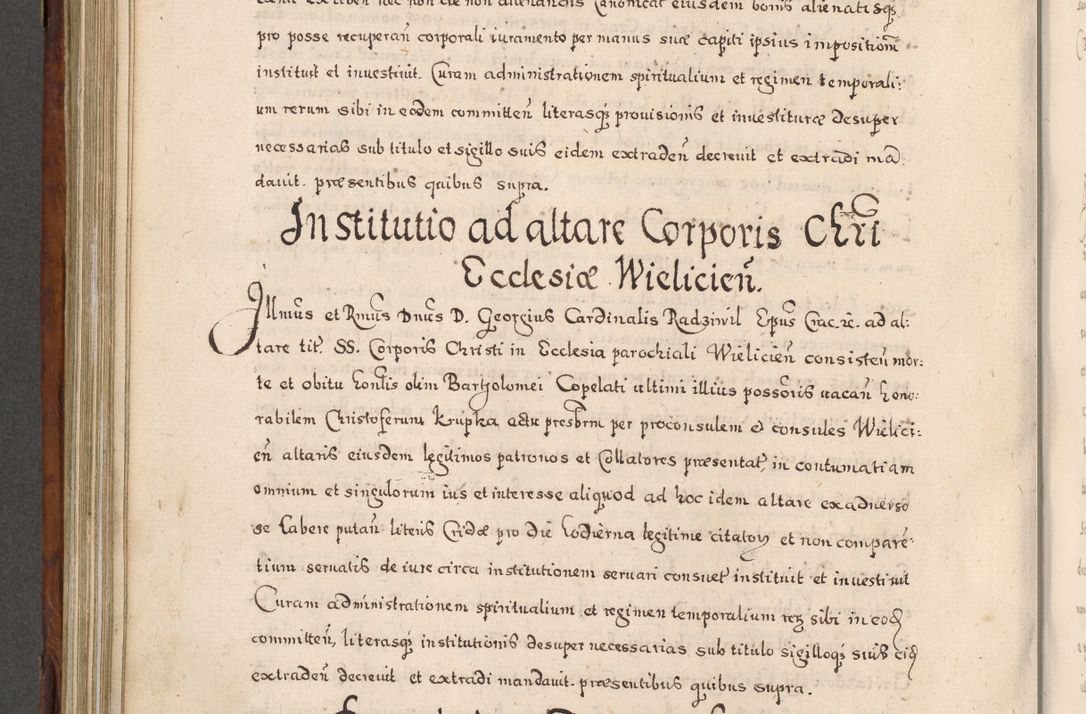 pro posse recuperañ corporali iuramento per manus suæ capiti ipsius impositionem
instituit et investivit. Curam administrationem spiritualium et regimen temporali:
um rerum sibi in eodem committeñ literasq₃ provisionis et inuestituræ desuper
necessarias sub titulo et sigillo suis eidem extradeñ decreuit et extradi mā:
dauit. præsentibus quibus supra.
Institutio ad altare Corporis Chr̃i
Ecclesiæ Wielicieñ.
Illmus et Rmus Dnus D. Georgius Cardinalis Radziwil Epus Crac. &c. ad al:
tare titⁱ SS. Corporis Christi in Ecclesia parochiali Wielicieñ consisteñ mor:
te et obitu honlis olim Bartholomei Copelati ultimi illius possoris uacañ hono:
rabilem Christoferum Krupka actu presbrm per proconsulem et consules Wielici:
eñ altaris eiusdem legitimos patronos et Collatores præsentat, in contumatiam
omnium et singulorum ius et interesse aliquod ad hoc idem altare ex aduerso
se habere putañ literis Cridæ pro die hodierna legitime citatoꝝ et non comparē:
tium seruatis de iure circa institutionem seruari consuet instituit et inuestiuit
Curam administrationem spiritualium et regimen temporalium reꝝ sibi in eod
committeñ, literasq₃ institutionis desuper necessarias sub titulo sigilloq₃ suis eid
extradeñ decreuit et extradi mandauit. præsentibus quibus supra.